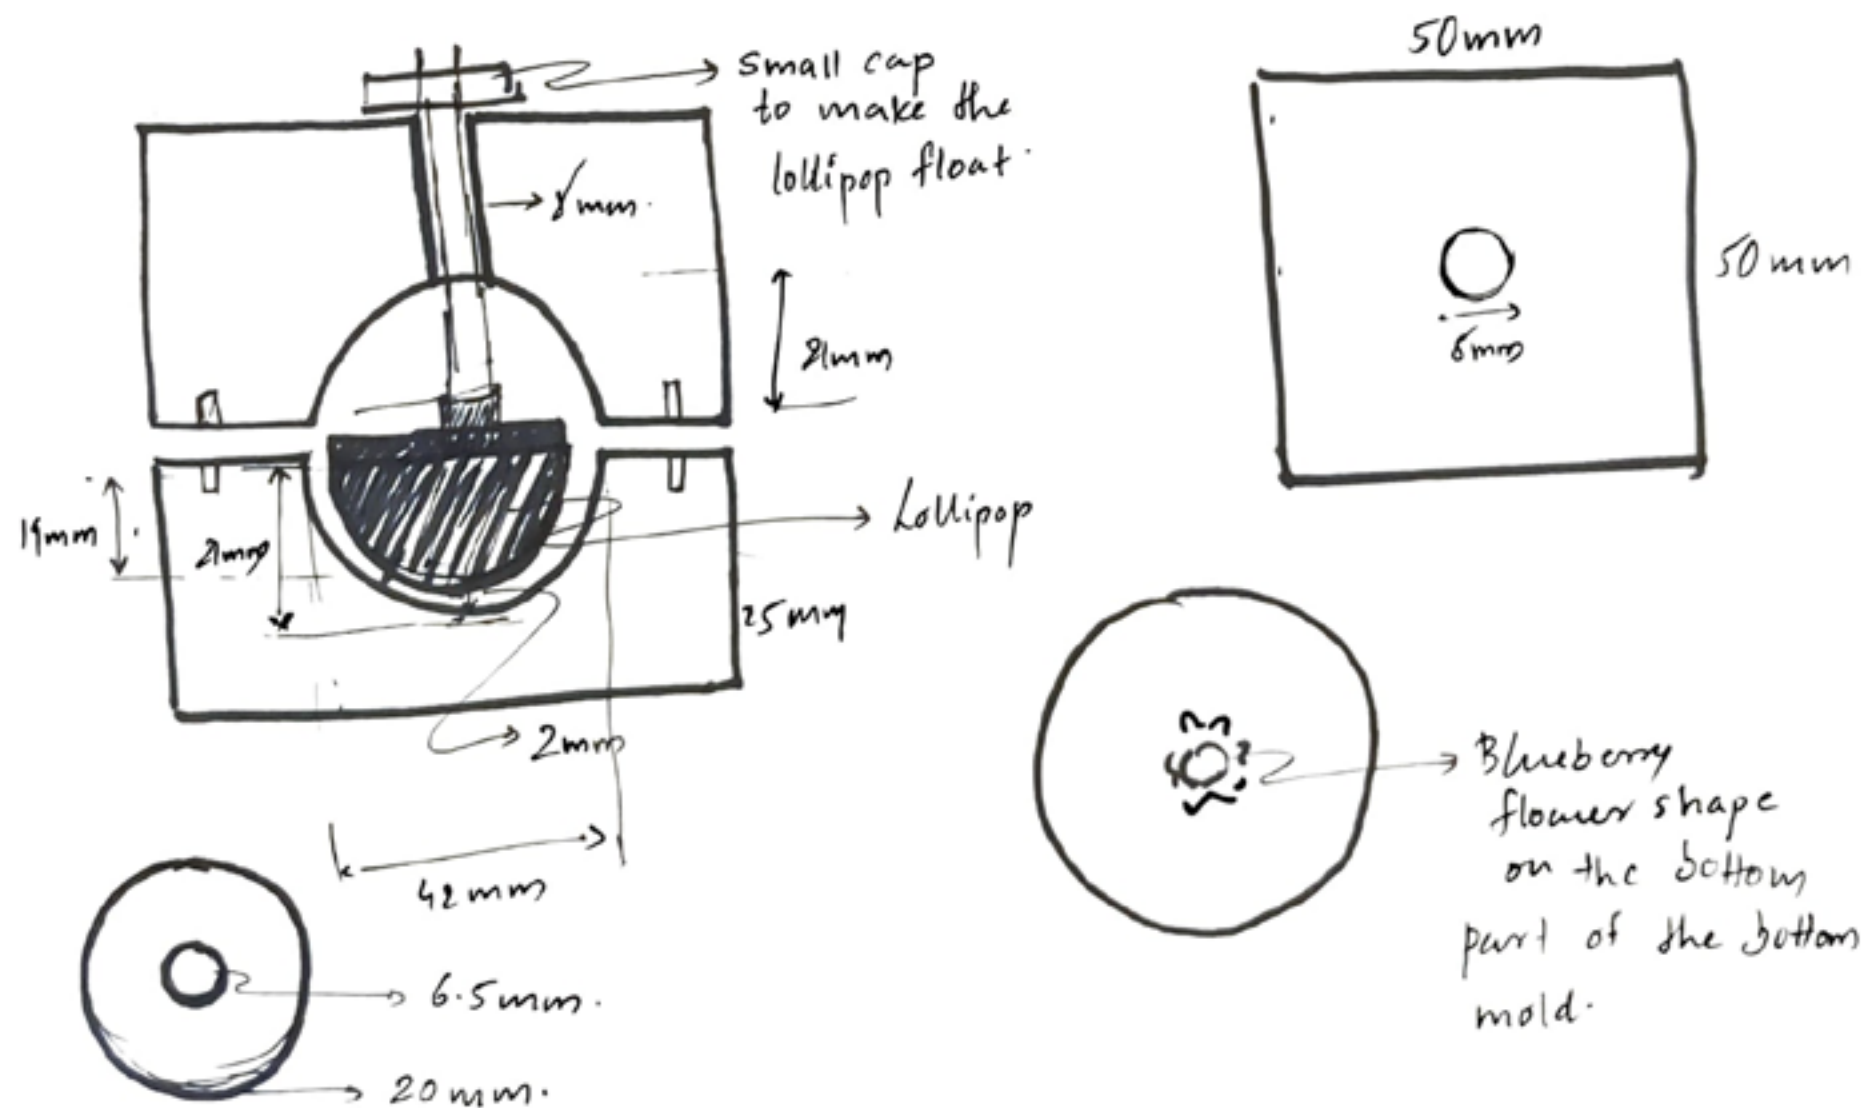 small cap
to make the
lollipop float.
50mm
50mm
21mm
Lollipop
21mm
25mm
2mm
42mm
6.5mm.
20mm.
Blueberry
flower shape
on the bottom
part of the bottom
mold.